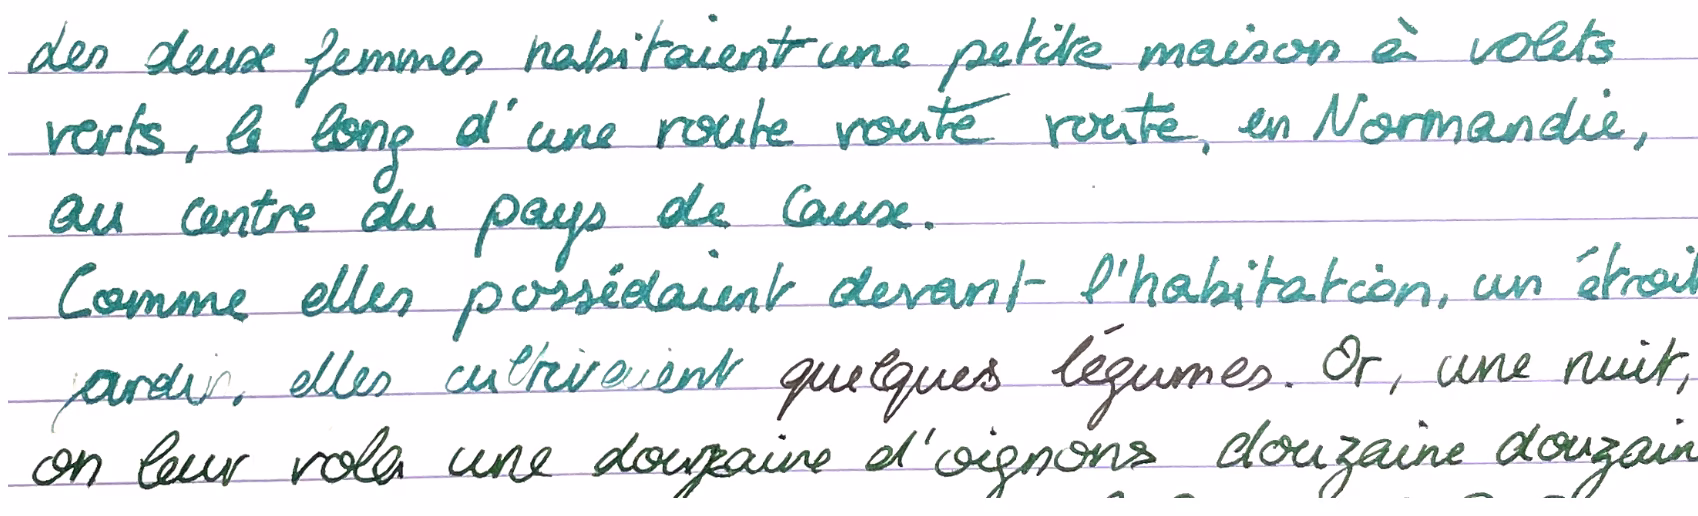 des deux femmes habitaient une petite maison à volets
verts, le long d'une route route route, en Normandie,
au centre du pays de Caux.
Comme elles possédaient devant l'habitation, un étroit
jardin, elles cultivaient quelques légumes. Or, une nuit,
on leur vola une douzaine d'oignons douzaine douzain